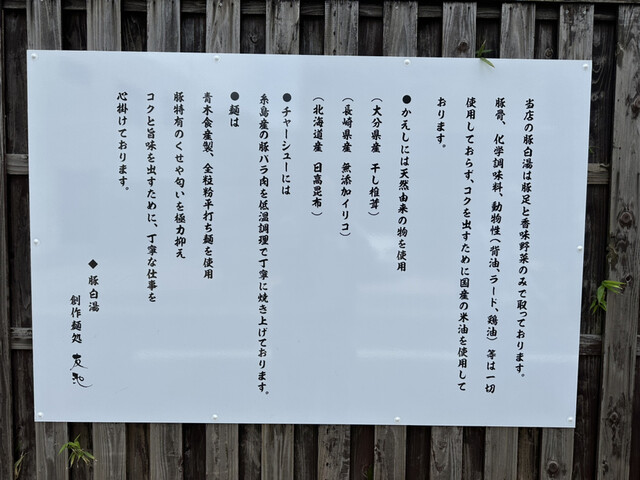 当店の豚白湯は豚足と香味野菜のみで取っております。
豚骨、化学調味料、動物性(背油、ラード、鶏油)等は一切
使用しておらず、コクを出すために国産の米油を使用して
おります。
●かえしには天然由来の物を使用
(大分県産 干し椎茸)
(長崎県産 無添加イリコ)
(北海道産 日高昆布)
●チャーシューには
糸島産の豚バラ肉を低温調理で丁寧に焼き上げております。
●麺は
青木食産製、全粒粉平打ち麺を使用
豚特有のくせや匂いを極力抑え
コクと旨味を出すために、丁寧な仕事を
心掛けております。
◆ 豚白湯
創作麺処 友池